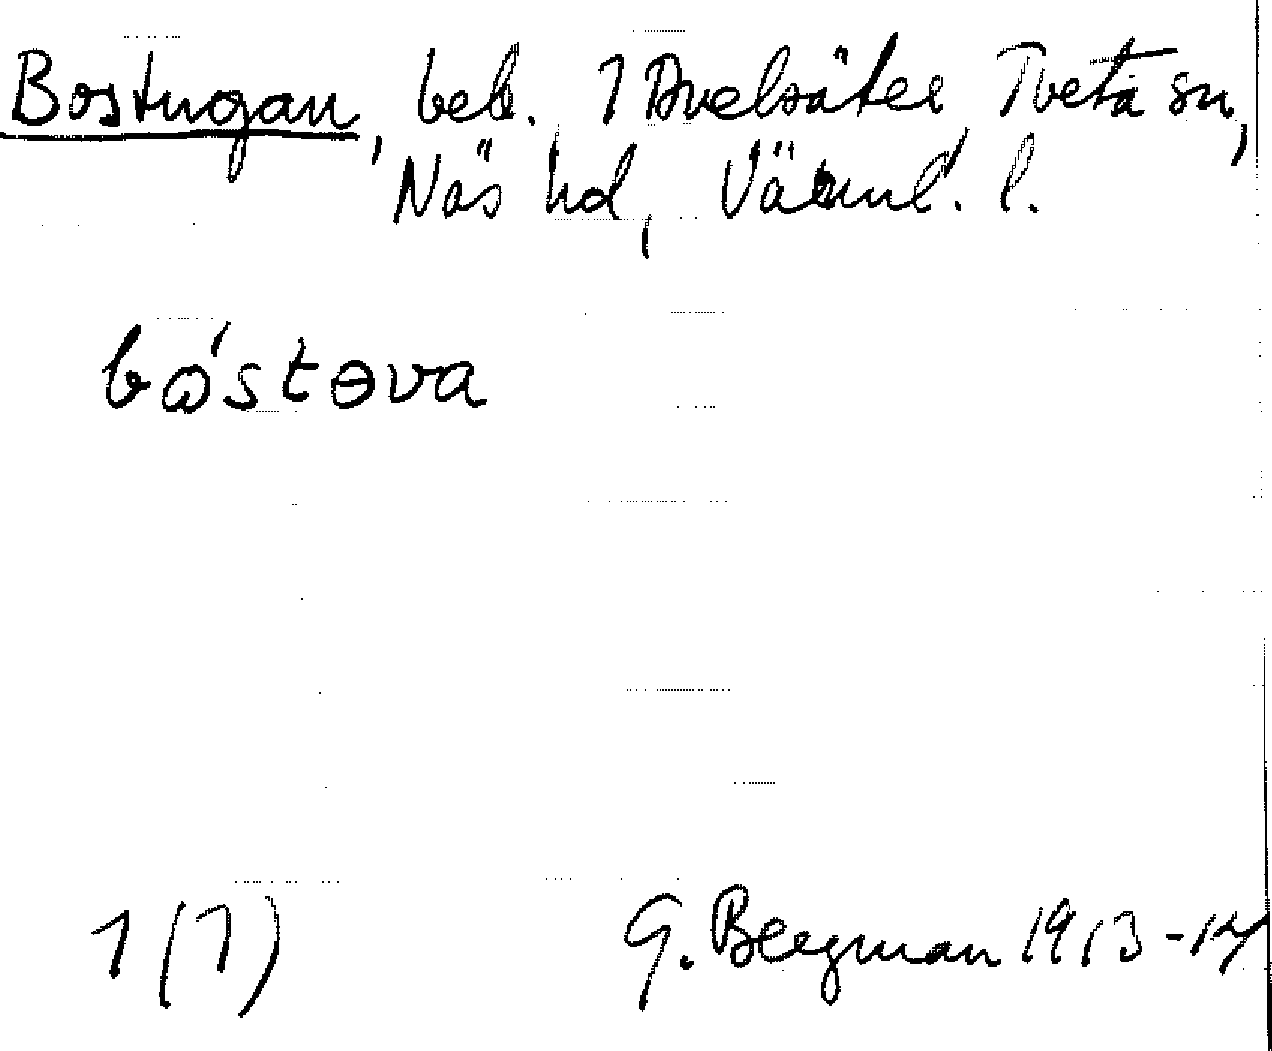 Bostugan, beb. 1 Avelsäter, Tveta sn,
Näs hd, Värml. l.
bo´stɵva
1 (1)
G. Bergman 1913-14